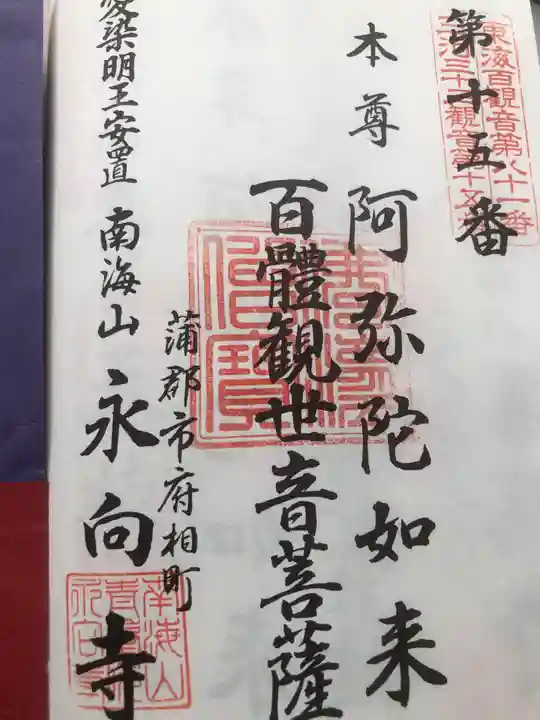 第十五番
東海百観音第八十一番
三河三十三観音第十五番
本尊 阿弥陀如来
百體観世音菩薩
蒲郡市府相町
愛染明王安置 南海山 永向寺
南海山